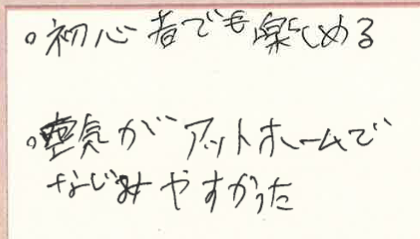 。初心者でも楽しめる
。空気がアットホームで
なじみやすかった